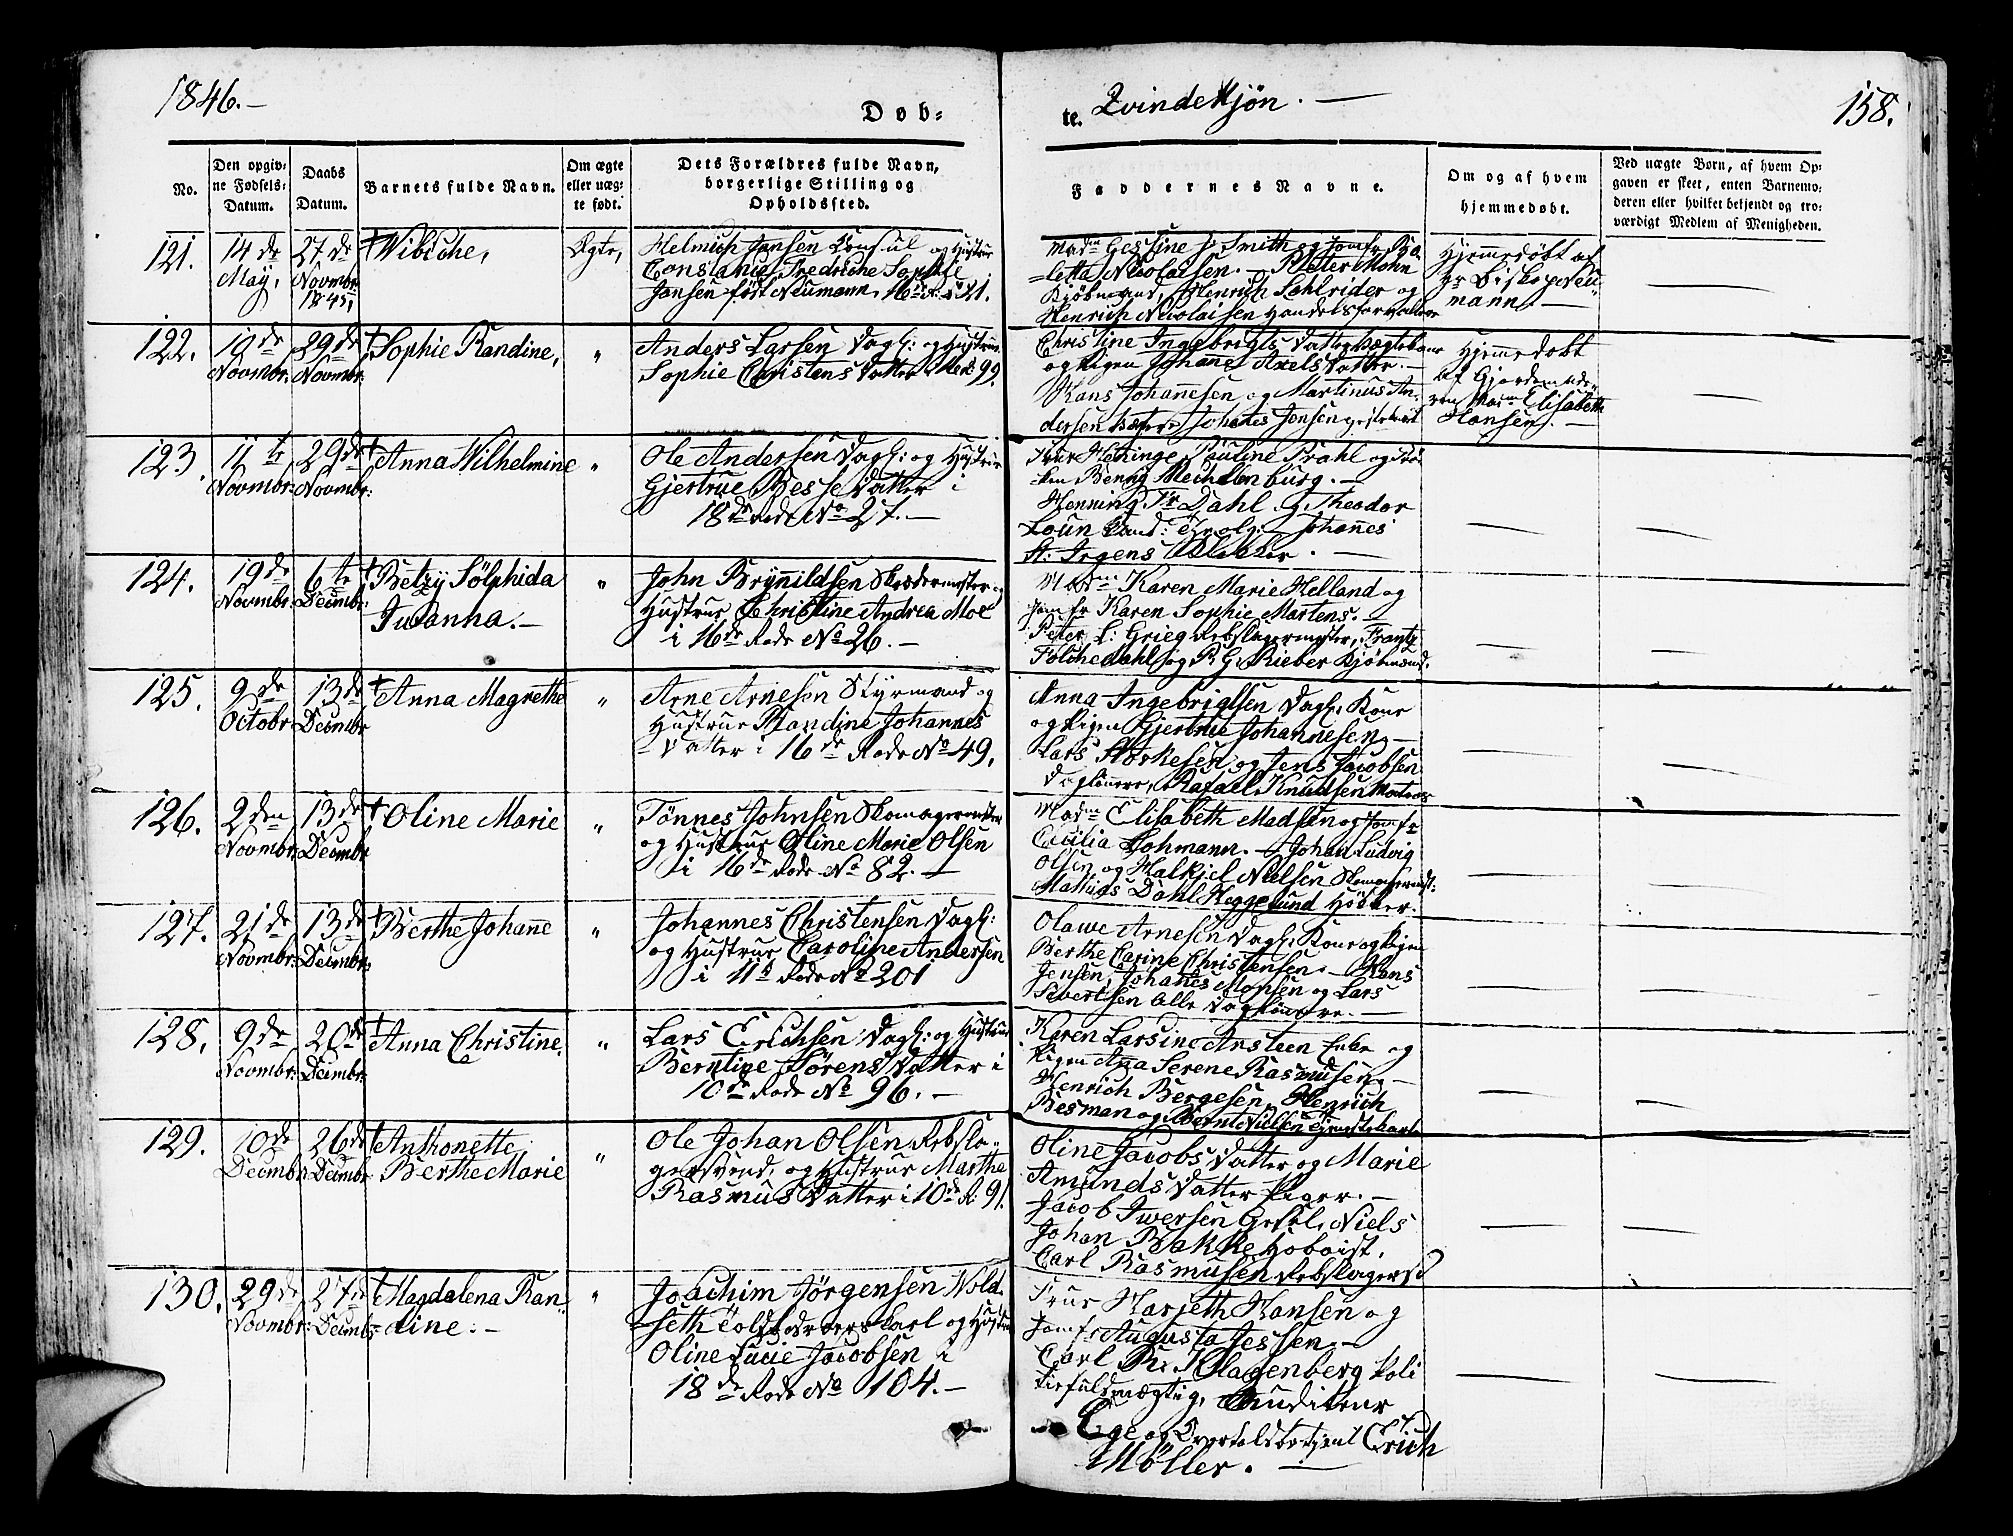 1846.-
Döb-
te. Qvindekjön. -
158.
No.
Den opgiv-
ne Fødsels-
Datum.
Daabs
Datum.
Barnets fulde Navn.
Om ægte
eller uæg-
te født.
Dets Forældres fulde Navn,
borgerlige Stilling og
Opholdssted.
Faddernes Navne.
Om og af hvem
hjemmedøbt.
Ved uægte Børn, af hvem Op-
gaven er skeet, enten Barnemo-
deren eller hvilket bekjendt og tro-
værdigt Medlem af Menigheden.
121. 14de May, 27de Novmbr: 1845,
† Wibiche,
Ægte,
Helmich Jansen Consul og Hustrue
Constance Fredriche Sophie
Jansen født Neumann, 16de R: 21.
Madm Gessine J. Smith og Jomfr. Bo-
letta Nicolaisen. - Peter Mohn
Kjøbmand, Henrich Sahlrider og
Henrich Nicolaisen Handelsforvalter
Hjemmedöbt af
Hr Biskop Neu-
mann. -
122. 10de Novmbr: 29de Novmbr:
† Sophie Randine,
"
Anders Larsen Dagl: og Hustrue
Sophie Christens Datter i 99.
Christine Ingebrigts Datter
og Pigen Johanne Axels Datter. -
Hans Johannesen og Martinus An-
dersen Johanes Jensen
Hjemmedöbt
af Gjordemode-
ren Madm Elisabeth
Hansen. -
123. 11te Novmbr: 29de Novmbr:
† Anna Wilhelmine
"
Ole Andersen Dagl: og Hustrue
Gjertrue Besse Datter i
18de Rode No 27. -
Frue Henninge Pauline Prahl og Frö-
ken Benny Mechlenburg. -
Henning Fr Dahl og Theodor
Loun Cand: Theolg: Johannes
St: Irgens Klokker. -
124. 19de Novmbr: 6te Decmbr:
† Betzÿ Sölphida
Susanna. -
"
John Brÿnildsen Skrædermester og
Hustrue Christine Andrea Moe
i 16de Rode No 26. -
Madm: Karen Marie Helland og
Jomfr Karen Sophie Martens. -
Peter L: Grieg Rebslagermester, Frantz
Dahl, og P. G. Rieber Kjöbmænd.
125. 9de Octobr 13de Decmbr
† Anna Magrethe
"
Arne Arnesen Styrmand og
Hustrue Randine Johannes
Datter i 16de Rode No 49,
Anna Ingebrigtsen Dagl: Kone
og Pigen Gjertrue Johannesen, -
Lars Askesen og Jens Jacobsen
Daglönnere, Rafael Knudsen Matros
126. 2den Novmbr: 13de Decmbr
† Oline Marie
"
Tönnes Johnsen Skomagermester
og Hustrue Oline Marie Olsen
i 16de Rode No 82. -
Madm Elisabeth Madsen og Jomfr
Cecilia Lohmann. - Johan Ludvig
Olsen og Halkjel Nielsen Skomagermst:
Mathias Dahl Heggelund Höker.
127. 21de Novmbr: 13de Decmbr:
† Berthe Johane
"
Johannes Christensen Dagl:
og Hustrue Caroline Andersen
i 11te Rode No 201
Olawe Arnesen Dagl: Kone og Pigen
Berthe Carine Christensen. - Hans
Jensen, Johanes Monsen og Lars
Sivertsen alle Daglönnere. -
128. 9de Novmbr: 20de Decmbr:
† Anna Christine,
"
Lars Erichsen Dagl: og Hustrue
Berntine Sörens Datter i
10de Rode No 96. -
Karen Larsine Ansteen Enke og
Pigen Ana Serene Rasmusen, -
Henrich Bergesen, Henrich
Besman og Bernt Nielsen Tjenestekarle
129. 10de Decmbr: 26de Decmbr
† Anthonette
Berthe Marie
"
Ole Johan Olsen Rebsla-
gersvend, og Hustrue Marthe
Rasmus Datter i 10de R: 91.
Oline Jacobs Datter og Marie
Amunds Datter Piger. -
Jacob Iwersen Gesel, Niels
Johan Bakke Hoboist,
Carl Rasmusen Rebslagersd
130. 29de Novmbr: 27de Decmbr
† Magdalena Ran-
dine. -
"
Joachim Jörgensen Wold-
seth Toldrorskarl og Hustrue
Oline Lucie Jacobsen i
18de Rode No 104. -
Frue Marjeth Hansen og
Jomfr Augusta Jessen, -
Carl R. Klagenberg Poli
tiefuldmægtig, Auditeur
Ege og Qvartalsbetjent Erich
Möller. -